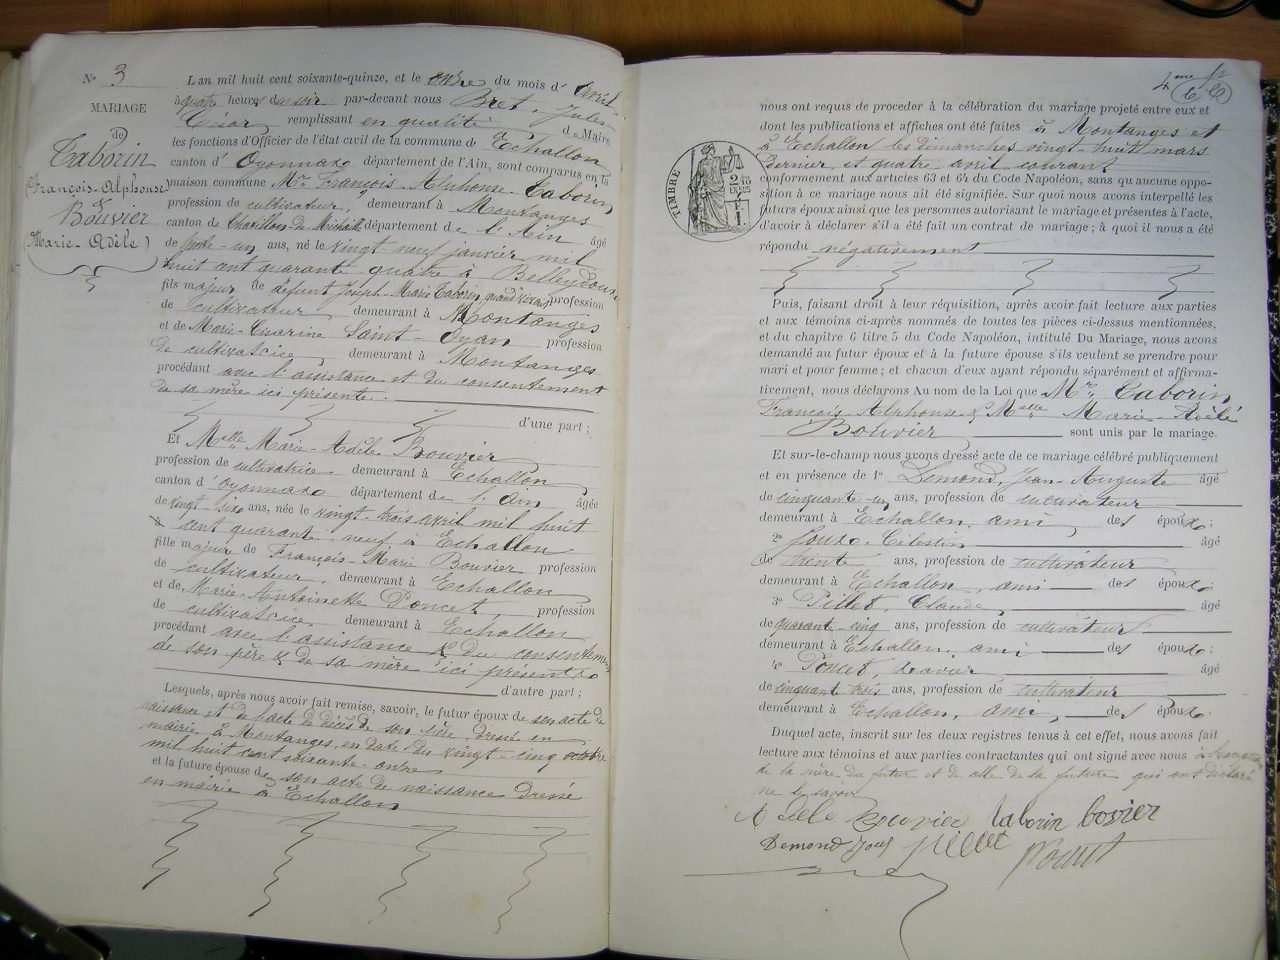 N° 3
MARIAGE
de
Taborin
(François-Alphonse)
&
Bouvier
(Marie-Adèle)
L'an mil huit cent soixante-quinze, et le onze du mois d'avril
à quatre heures du soir par-devant nous Bret, Jules
César, remplissant en qualité de Maire
les fonctions d'Officier de l'état civil de la commune de Echallon
canton d'Oyonnaxe département de l'Ain, sont comparus en la
maison commune Mr François-Alphonse Taborin,
profession de cultivateur, demeurant à Montanges
canton de Châtillon-de-Michaille département de l'Ain âgé
de trente-un ans, né le vingt-neuf janvier mil
huit cent quarante quatre à Belleydoux
fils majeur de défunt Joseph-Marie Taborin, quand vivait profession
de cultivateur demeurant à Montanges
et de Marie-Césarine Saint-Oyan profession
de cultivatrice, demeurant à Montanges
procédant avec l'assistance et du consentement
de sa mère ici présente.
d'une part ;
Et Melle Marie-Adèle Bouvier
profession de cultivatrice demeurant à Echallon,
canton d'Oyonnaxe département de l'Ain âgée
de vingt-six ans, née le vingt-trois avril mil huit
cent quarante-neuf à Echallon
fille majeur de François-Marie Bouvier profession
de cultivateur, demeurant à Echallon
et de Marie-Antoinette Poncet, profession
de cultivatrice demeurant à Echallon
procédant avec l'assistance & du consentement
de son père & de sa mère ici présents
d'autre part ;
Lesquels, après nous avoir fait remise, savoir, le futur époux de son acte de
naissance et de l'acte de décès de son père, dressé en
mairie à Montanges, en date du vingt-cinq octobre
mil huit cent soixante-onze
et la future épouse de son acte de naissance dressé
en mairie à Echallon
4me
nous ont requis de procéder à la célébration du mariage projeté entre eux et
dont les publications et affiches ont été faites à Montanges et
à Echallon les dimanches vingt-huit mars
dernier et quatre avril courant
conformement aux articles 63 et 64 du Code Napoléon, sans qu'aucune oppo-
sition à ce mariage nous ait été signifiée. Sur quoi nous avons interpellé les
futurs époux ainsi que les personnes autorisant le mariage et présentes à l'acte,
d'avoir à déclarer s'il a été fait un contrat de mariage ; à quoi il nous a été
répondu négativement
TIMBRE
Puis, faisant droit à leur réquisition, après avoir fait lecture aux parties
et aux témoins ci-après nommés de toutes les pièces ci-dessus mentionnées,
et du chapitre 6 titre 5 du Code Napoléon, intitulé Du Mariage, nous avons
demandé au futur époux et à la future épouse s'ils veulent se prendre pour
mari et pour femme ; et chacun d'eux ayant répondu séparément et affirma-
tivement, nous déclarons Au nom de la Loi que Mr Taborin,
François-Alphonse & Melle Marie-Adèle
Bouvier sont unis par le mariage.
Et sur-le-champ nous avons dressé acte de ce mariage célébré publiquement
et en présence de 1° Demond, Jean-Auguste âgé
de cinquante-un ans, profession de cultivateur
demeurant à Echallon, ami des époux ;
2° Joux-Célestin âgé
de trente ans, profession de cultivateur
demeurant à Echallon, ami des époux ;
3° Pillet, Claude, âgé
de quarante-cinq ans, profession de cultivateur
demeurant à Echallon, ami des époux ;
4° Poncet, Xavier âgé
de cinquante trois ans, profession de cultivateur
demeurant à Echallon, ami, des époux.
Duquel acte, inscrit sur les deux registres tenus à cet effet, nous avons fait
lecture aux témoins et aux parties contractantes qui ont signé avec nous
de la mère du futur et de celle de la future qui ont déclaré
ne le savoir
Adèle Bouvier taborin bovier
Demond Joux Pillet Poncet